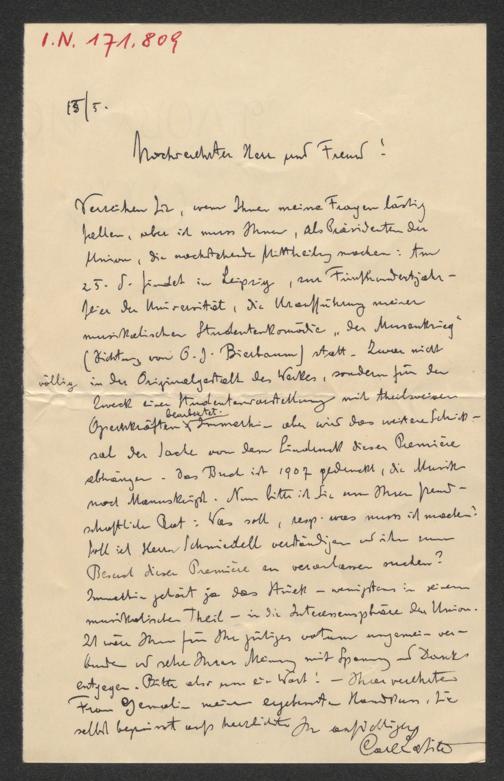 I.N. 171.809
15/5.
Hochverehrter Herr und Freund!
Verzeihen Sie, wenn Ihnen meine Fragen lästig
fallen, aber ich muss Ihnen, als Präsidenten der
Union, die nachstehende Mittheilung machen: Am
25. d. findet in Leipzig, zur Fünfhundertjahr-
feier der Universität, die Uraufführung meiner
musikalischen Studentenkomödie „der Musenkrieg“
(Dichtung von O. J. Bierbaum) statt. Zwar nicht
in der Originalgestalt des Werkes, sondern für den
völlig
Zweck einer Studentenvorstellung mit theilweisen
Opernkräften bearbeitet. Immerhin aber wird das weitere Schick-
sal der Sache von dem Eindruck dieser Première
abhängen. Das Buch ist 1907 gedruckt, die Musik
noch Manuskript. Nun bitte ich Sie um Ihren freund-
schaftlichen Rat: Was soll, resp. was muss ich machen?
Soll ich Herrn Schmiedell verständigen und ihn zum
Besuch dieser Première zu veranlassen suchen?
Immerhin gehört ja das Stück – wenigstens in seinem
musikalischen Theil – in die Interessensphäre der Union.
Ich wäre Ihnen für Ihr gütiges votum ungemein ver-
bunden und sehe Ihrer Meinung mit Spannung und Dank
entgegen. Bitte also um ein Wort! – Ihrer verehrten
Frau Gemalin meinen ergebensten Handkuss, Sie
selbst begrüsst aufs herzlichste Ihr aufrichtiger
Carl Lafite